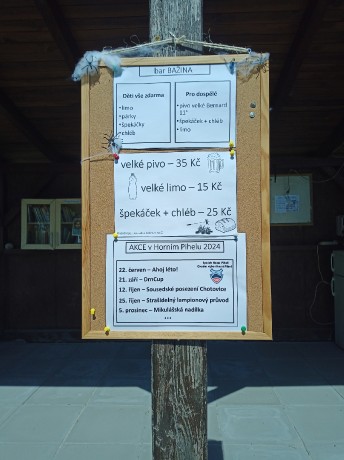 bar BAŽINA
Děti vše zdarma
• limo
• párky
• špekáčky
• chléb
Pro dospělé
• pivo velké Bernard
11°
• špekáček + chléb
• limo
velké pivo – 35 Kč
velké limo – 15 Kč
špekáček + chléb – 25 Kč
AKCE v Horním Pihelu 2024
22. červen – Ahoj léto!
21. září – DrnCup
12. říjen – Sousedské posezení Chotovice
25. říjen – Strašidelný lampionový průvod
5. prosinec – Mikulášská nadílka
...